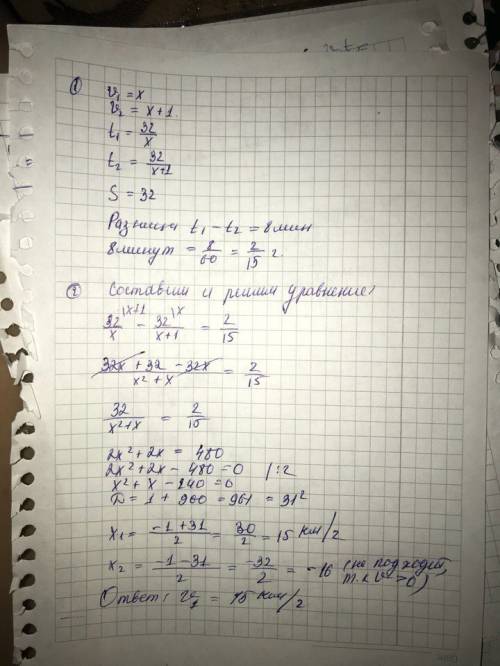 ① v₁ = x
v₂ = x+1.
t₁ = 32/x
t₂ = 32/(x+1)
S = 32
Разница t₁ - t₂ = 8 мин
8 минут = 8/60 = 2/15 г.
② Составим и решим уравнение,
32/x |x+1 - 32/(x+1) |x = 2/15
(32x + 32 - 32x)/(x² + x) = 2/15
32/(x²+x) = 2/15
2x² + 2x = 480
2x² + 2x - 480 = 0 / :2
x² + x - 240 = 0
D = 1 + 960 = 961 = 31²
x₁ = (-1+31)/2 = 30/2 = 15 км/г
x₂ = (-1-31)/2 = -32/2 = -16 (не подходит,
т.к v >0)
Ответ: v₁ = 15 км/г